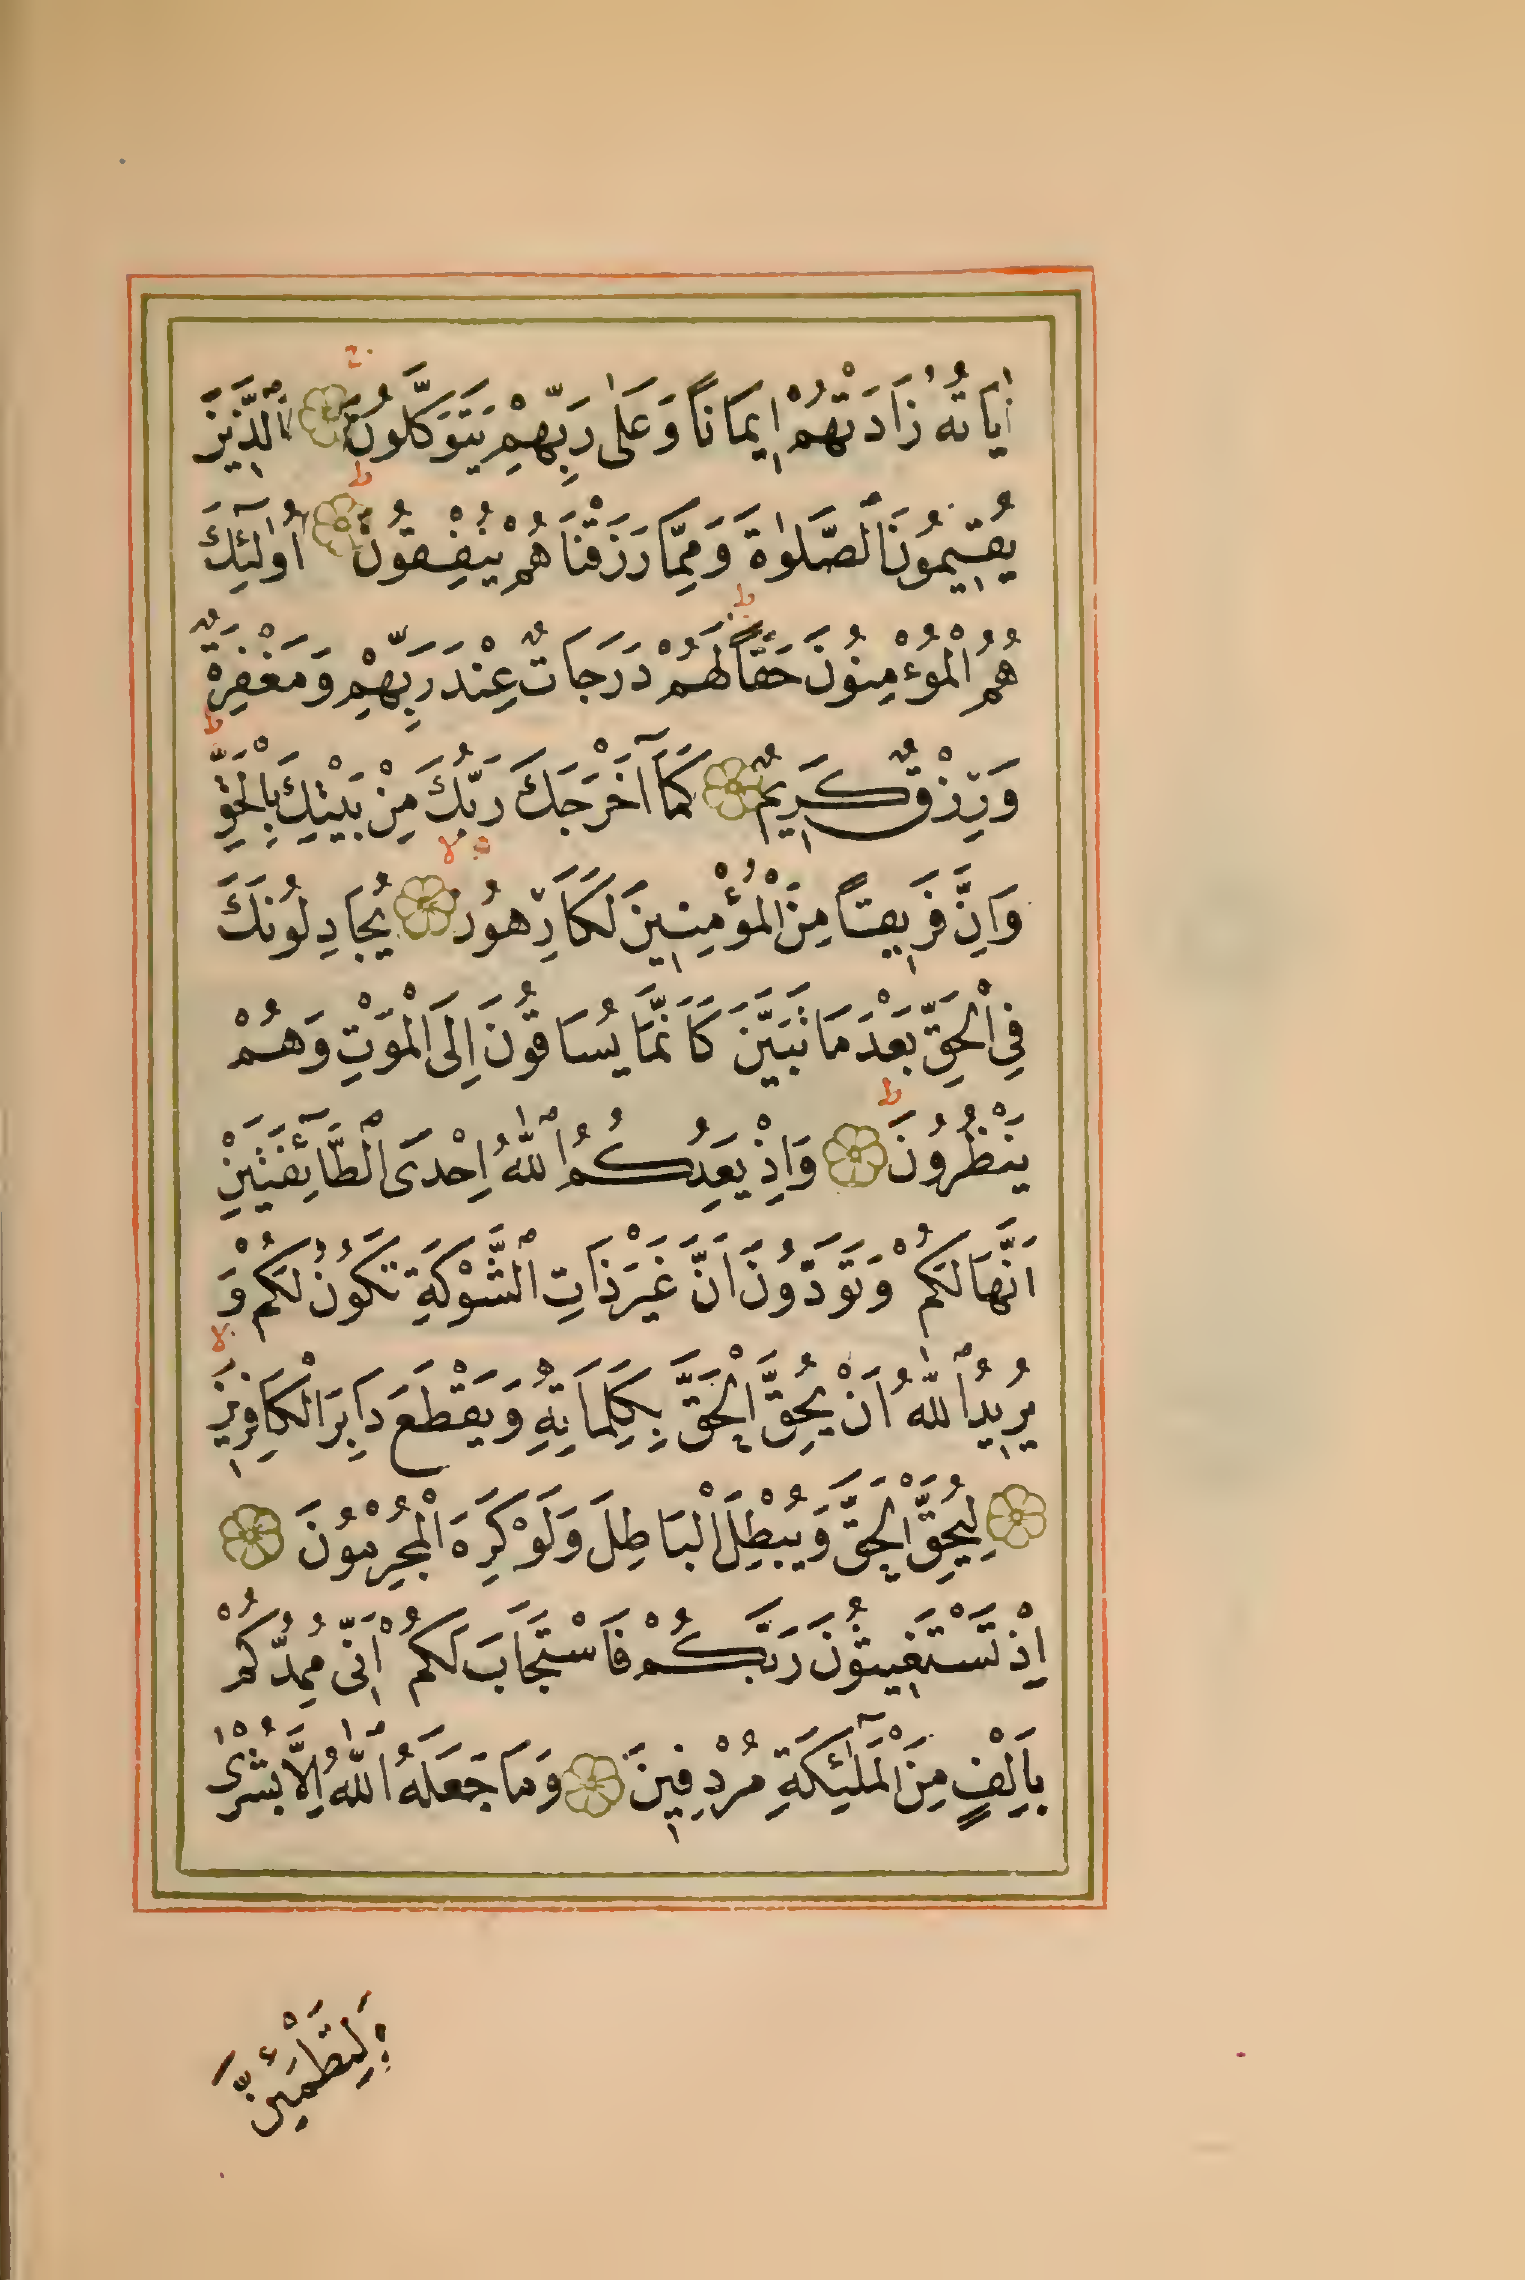 اٰيَاتُهُ زَادَتْهُمْ اِيمَانًا وَعَلٰى رَبِّهِمْ يَتَوَكَّلُونَ اَلَّذِينَ
يُقِيمُونَ الصَّلٰوةَ وَمِمَّا رَزَقْنَاهُمْ يُنْفِقُونَ اُولٰٓئِكَ
هُمُ الْمُؤْمِنُونَ حَقًّا لَهُمْ دَرَجَاتٌ عِنْدَ رَبِّهِمْ وَمَغْفِرَةٌ
وَرِزْقٌ كَرِيمٌ كَمَآ اَخْرَجَكَ رَبُّكَ مِنْ بَيْتِكَ بِالْحَقِّ
وَاِنَّ فَرِيقًا مِنَ الْمُؤْمِنِينَ لَكَارِهُونَ يُجَادِلُونَكَ
فِي الْحَقِّ بَعْدَ مَا تَبَيَّنَ كَاَنَّمَا يُسَاقُونَ اِلَى الْمَوْتِ وَهُمْ
يَنْظُرُونَ وَاِذْ يَعِدُكُمُ اللّٰهُ اِحْدَى الطَّآئِفَتَيْنِ
اَنَّهَا لَكُمْ وَتَوَدُّونَ اَنَّ غَيْرَ ذَاتِ الشَّوْكَةِ تَكُونُ لَكُمْ وَ
يُرِيدُ اللّٰهُ اَنْ يُحِقَّ الْحَقَّ بِكَلِمَاتِهِ وَيَقْطَعَ دَابِرَ الْكَافِرِينَ
لِيُحِقَّ الْحَقَّ وَيُبْطِلَ الْبَاطِلَ وَلَوْ كَرِهَ الْمُجْرِمُونَ
اِذْ تَسْتَغِيثُونَ رَبَّكُمْ فَاسْتَجَابَ لَكُمْ اَنِّى مُمِدُّكُمْ
بِاَلْفٍ مِنَ الْمَلٰٓئِكَةِ مُرْدِفِينَ وَمَا جَعَلَهُ اللّٰهُ اِلَّا بُشْرٰى
وَلِتَطْمَئِنَّ